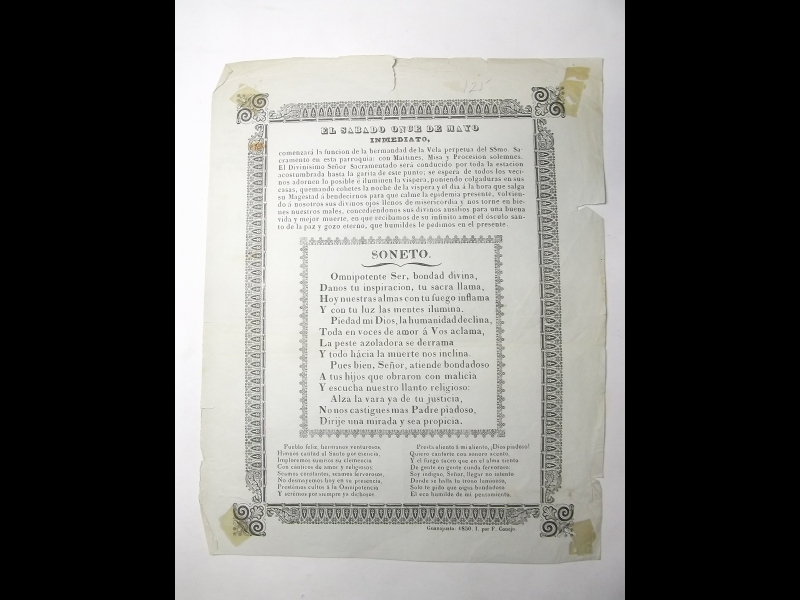 125
EL SABADO ONCE DE MAYO
INMEDIATO,
comenzará la funcion de la hermandad de la Vela perpetua del SSmo. Sa-
cramento en esta parroquia: con Maitines, Misa y Procesion solemnes.
El Divinísimo Señor Sacramentado será conducido por toda la estacion
acostumbrada hasta la garita de este punto; se espera de todos los veci-
nos adornen lo posible é iluminen la víspera, poniendo colgaduras en sus
casas, quemando cohetes la noche de la víspera y el dia á la hora que salga
su Magestad á bendecirnos para que calme la epidemia presente, volvien-
do á nosotros sus divinos ojos llenos de misericordia y nos torne en bie-
nes nuestros males, concediendonos sus divinos ausilios para una buena
vida y mejor muerte, en que recibamos de su infinito amor el ósculo san-
to de la paz y gozo eterno, que humildes le pedimos en el presente.
SONETO.
Omnipotente Ser, bondad divina,
Danos tu inspiracion, tu sacra llama,
Hoy nuestras almas con tu fuego inflama
Y con tu luz las mentes ilumina.
Piedad mi Dios, la humanidad declina,
Toda en voces de amor á Vos aclama,
La peste azoladora se derrama
Y todo hácia la muerte nos inclina.
Pues bien, Señor, atiende bondadoso
A tus hijos que obraron con malicia
Y escucha nuestro llanto religioso:
Alza la vara ya de tu justicia,
No nos castigues mas Padre piadoso,
Dirije una mirada y sea propicia.
Pueblo feliz, hermanos venturosos,
Himnos cantad al Santo por esencia,
Imploremos sumisos su clemencia
Con cánticos de amor y religiosos;
Seamos constantes, seamos fervorosos,
No desmayemos hoy en su presencia,
Prestémos cultos á la Omnipotencia
Y serémos por siempre ya dichosos
Presta aliento á mi aliento, ¡Dios piadoso!
Quiero cantarte con sonoro acento,
Y el fuego sacro que en el alma siento
De gente en gente cunda fervoroso:
Soy indigno, Señor, llegar no intento
Donde se halla tu trono luminoso,
Solo te pido que oigas bondadoso
El eco humilde de mi pensamiento.
Guanajuato. 1850. I. por F. Conejo